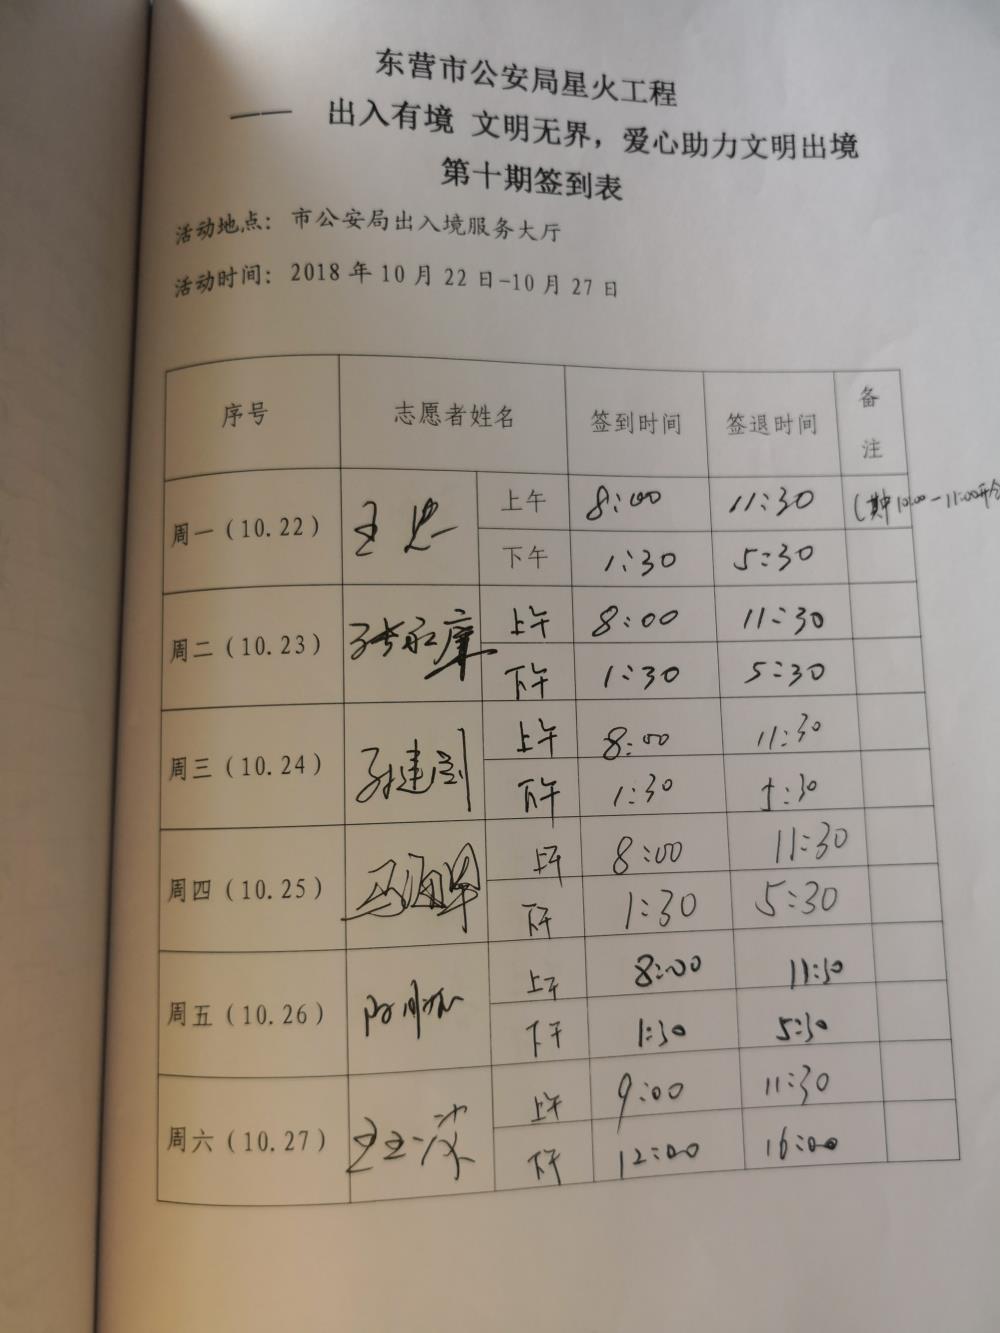 东营市公安局星火工程
—— 出入有境 文明无界，爱心助力文明出境
第十期签到表
活动地点：市公安局出入境服务大厅
活动时间：2018 年 10 月 22 日-10 月 27 日
序号 志愿者姓名 签到时间 签退时间 备注
周一（10.22） 上午 8:00 11:30 (其中10:00-11:00开会
下午 1:30 5:30
周二（10.23） 上午 8:00 11:30
下午 1:30 5:30
周三（10.24） 孙建 上午 8:00 11:30
下午 1:30 5:30
周四（10.25） 上午 8:00 11:30
下午 1:30 5:30
周五（10.26） 上午 8:00 11:30
下午 1:30 5:30
周六（10.27） 上午 9:00 11:30
下午 12:00 16:00